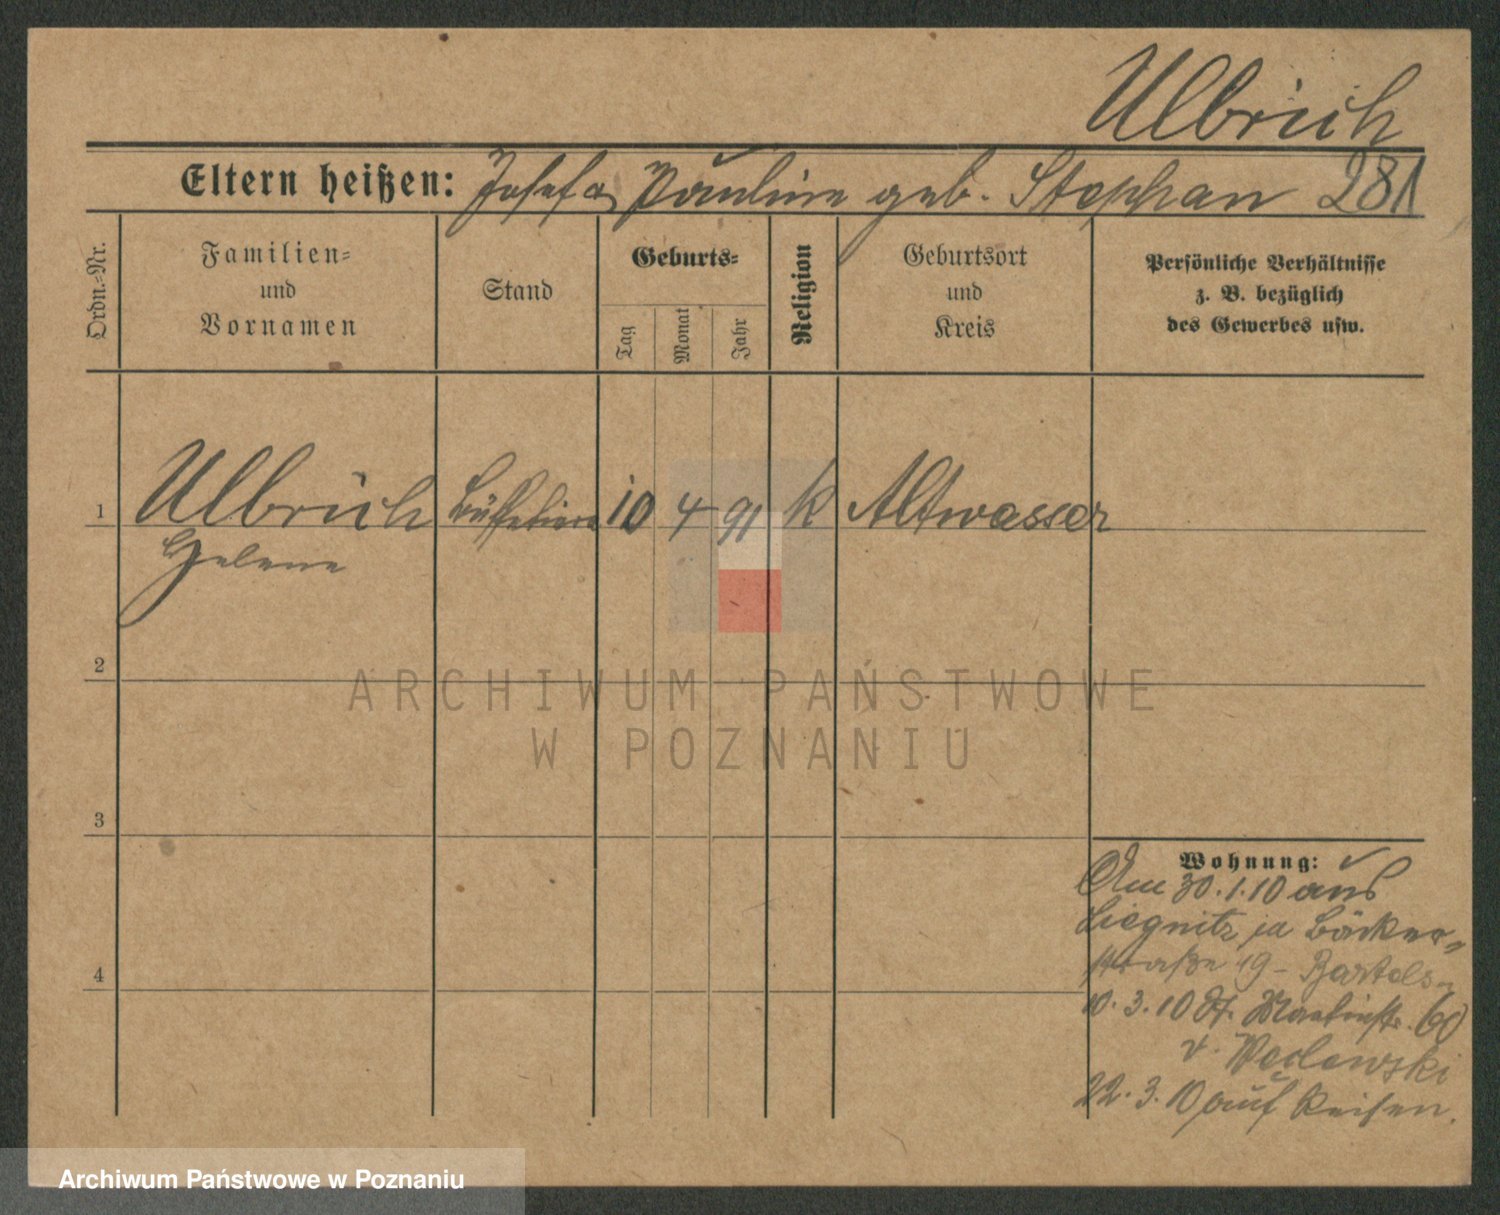 Ulbrich
Eltern heißen: Josef a Pauline geb. Stephan 281
Ordn.-Nr.
Familien-
und
Vornamen
Stand
Geburts-
Tag
Monat
Jahr
Religion
Geburtsort
und
Kreis
Persönliche Verhältnisse
z. B. bezüglich
des Gewerbes usw.
1 Ulbrich Büffetiere 10 4 91 k Altwasser
Helene
2
ARCHIWUM PAŃSTWOWE
W POZNANIU
3
Wohnung:
Am 30.1.10 aus
Liegnitz ja Bäcker-
straße 19 - Bartels
10.3.10 St. Martinstr. 60
v. Weclewski
22.3.10 auf Reisen.
4
Archiwum Państwowe w Poznaniu